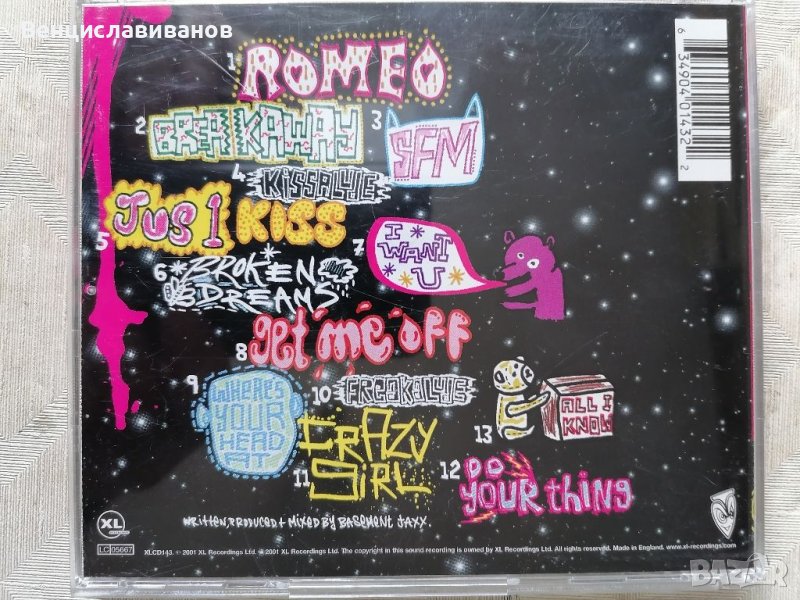 Венциславиванов
1 ROMEO
2 BREAKAWAY
3 SFM
4 KISSALUDE
5 Jus 1 KISS
6 BROKEN DREAMS
7 I WANT U
8 get me off
9 WHERE'S YOUR HEAD AT
10 FREAKALUDE
11 CRAZY GIRL
12 DO YOUR thing
13 ALL I KNOW
WRITTEN, PRODUCED + MIXED BY BASEMENT JAXX.
XL
LC 05667
XLCD143. ℗ 2001 XL Recordings Ltd. © 2001 XL Recordings Ltd. The copyright in this sound recording is owned by XL Recordings Ltd. All rights reserved. Made in England. www.xl-recordings.com
6 34904 01432 2
BAZAR